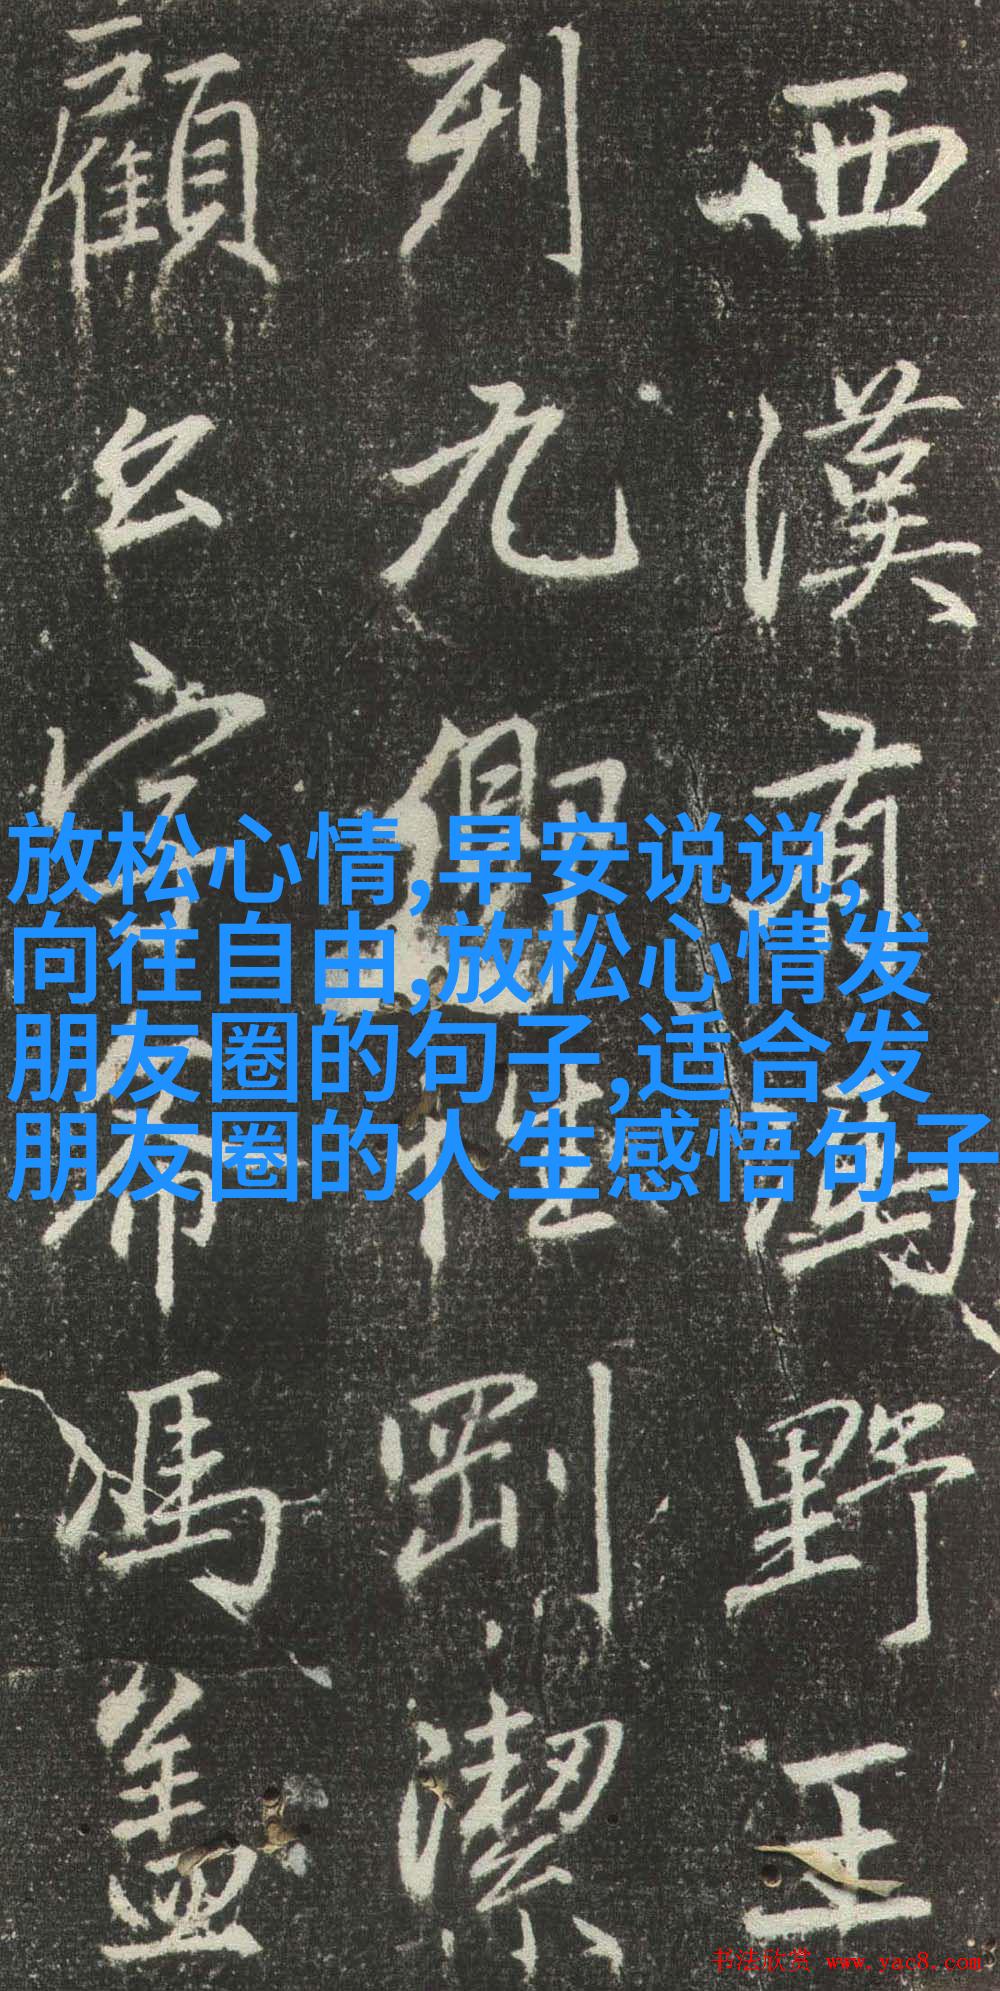 放松心情,早安说说,
向往自由,放松心情发
朋友圈的句子,适合发
朋友圈的人生感悟句子
西漢有馮野王
列九卿性剛潔
顧馮盖
书法欣赏 www.yac8.com